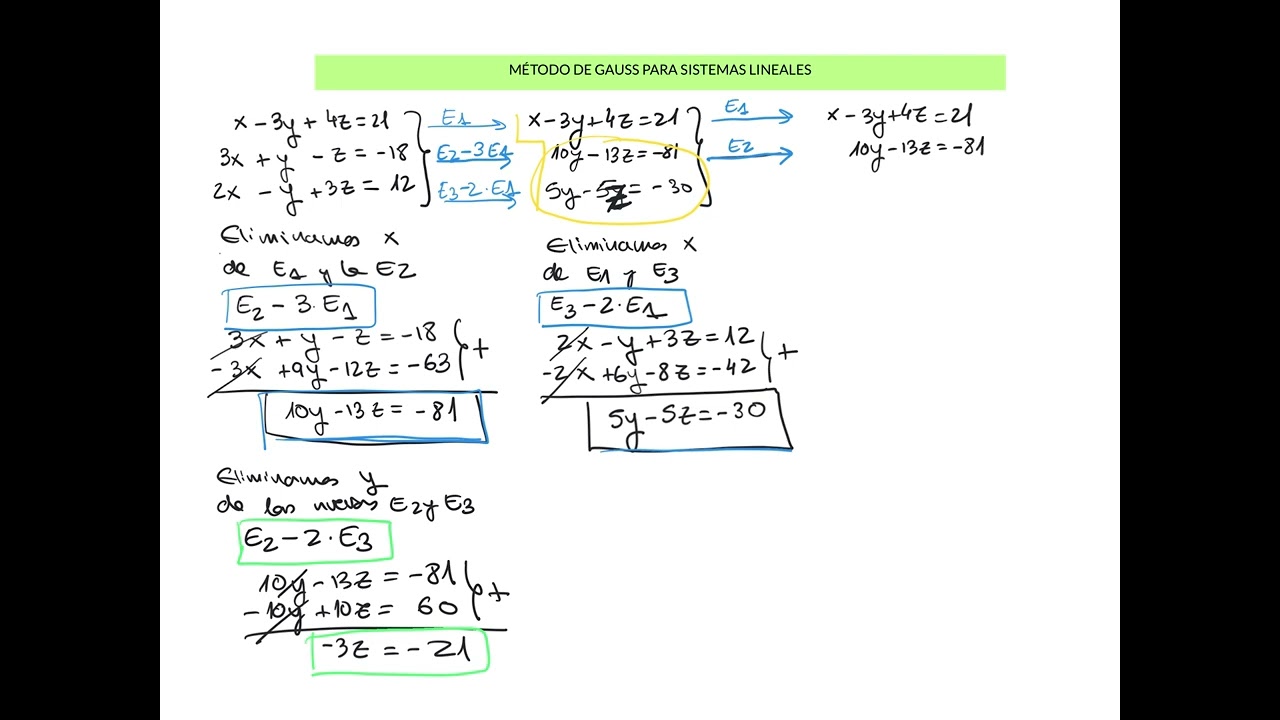 MÉTODO DE GAUSS PARA SISTEMAS LINEALES
x - 3y + 4z = 21
3x + y - z = -18
2x - y + 3z = 12
E1
E2 - 3E1
E3 - 2·E1
x - 3y + 4z = 21
10y - 13z = -81
5y - 5z = -30
E1
E2
x - 3y + 4z = 21
10y - 13z = -81
Eliminamos x
de E1 y la E2
E2 - 3·E1
3x + y - z = -18
-3x + 9y - 12z = -63
+
10y - 13z = -81
Eliminamos x
de E1 y E3
E3 - 2·E1
2x - y + 3z = 12
-2x + 6y - 8z = -42
+
5y - 5z = -30
Eliminamos y
de las nuevas E2 y E3
E2 - 2·E3
10y - 13z = -81
-10y + 10z = 60
+
-3z = -21